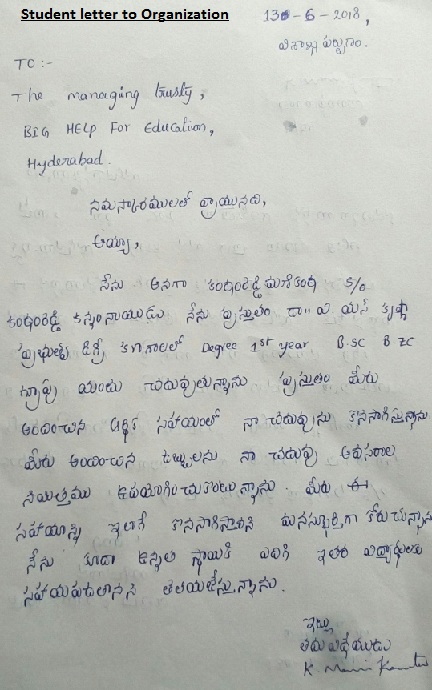 Student letter to Organization
13-6-2018,
విశాఖ పట్నం.
TO :-
The managing trusty,
BIG HELP For Education,
Hyderabad.
నమస్కారములతో వ్రాయునది,
అయ్యా,
నేను అనగా S/o
నేను ప్రస్తుతం డా" వి యస్ కృష్ణా
డిగ్రీ కళాశాలలో Degree 1st year B.SC BZC
గ్రూపు నందు చదువుతున్నాను ప్రస్తుతం మీరు
అందించిన ఆర్థిక సహాయంలో నా చదువును కొనసాగిస్తున్నాను
మీరు అందించిన డబ్బులను నా చదువు అవసరాల
నిమిత్తము ఉపయోగించుకుంటున్నాను. మీరు ఈ
సహాయాన్ని ఇలాగే కొనసాగిస్తారని మనస్ఫూర్తిగా కోరుచున్నాను
నేను కూడా ఉన్నత స్థాయికి ఎదిగి ఇతర విద్యార్థులకు
సహాయపడతానని తెలియజేస్తున్నాను.
ఇట్లు
తమ విధేయుడు
K. Mani Kanta